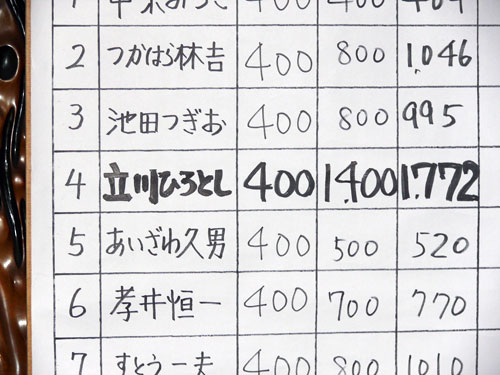 2 つかはら林吉 400 800 1,046
3 池田つぎお 400 800 995
4 立川ひろとし 400 1,400 1,772
5 あいざわ久男 400 500 520
6 孝井恒一 400 700 770
7 すとう一夫 400 800 1010